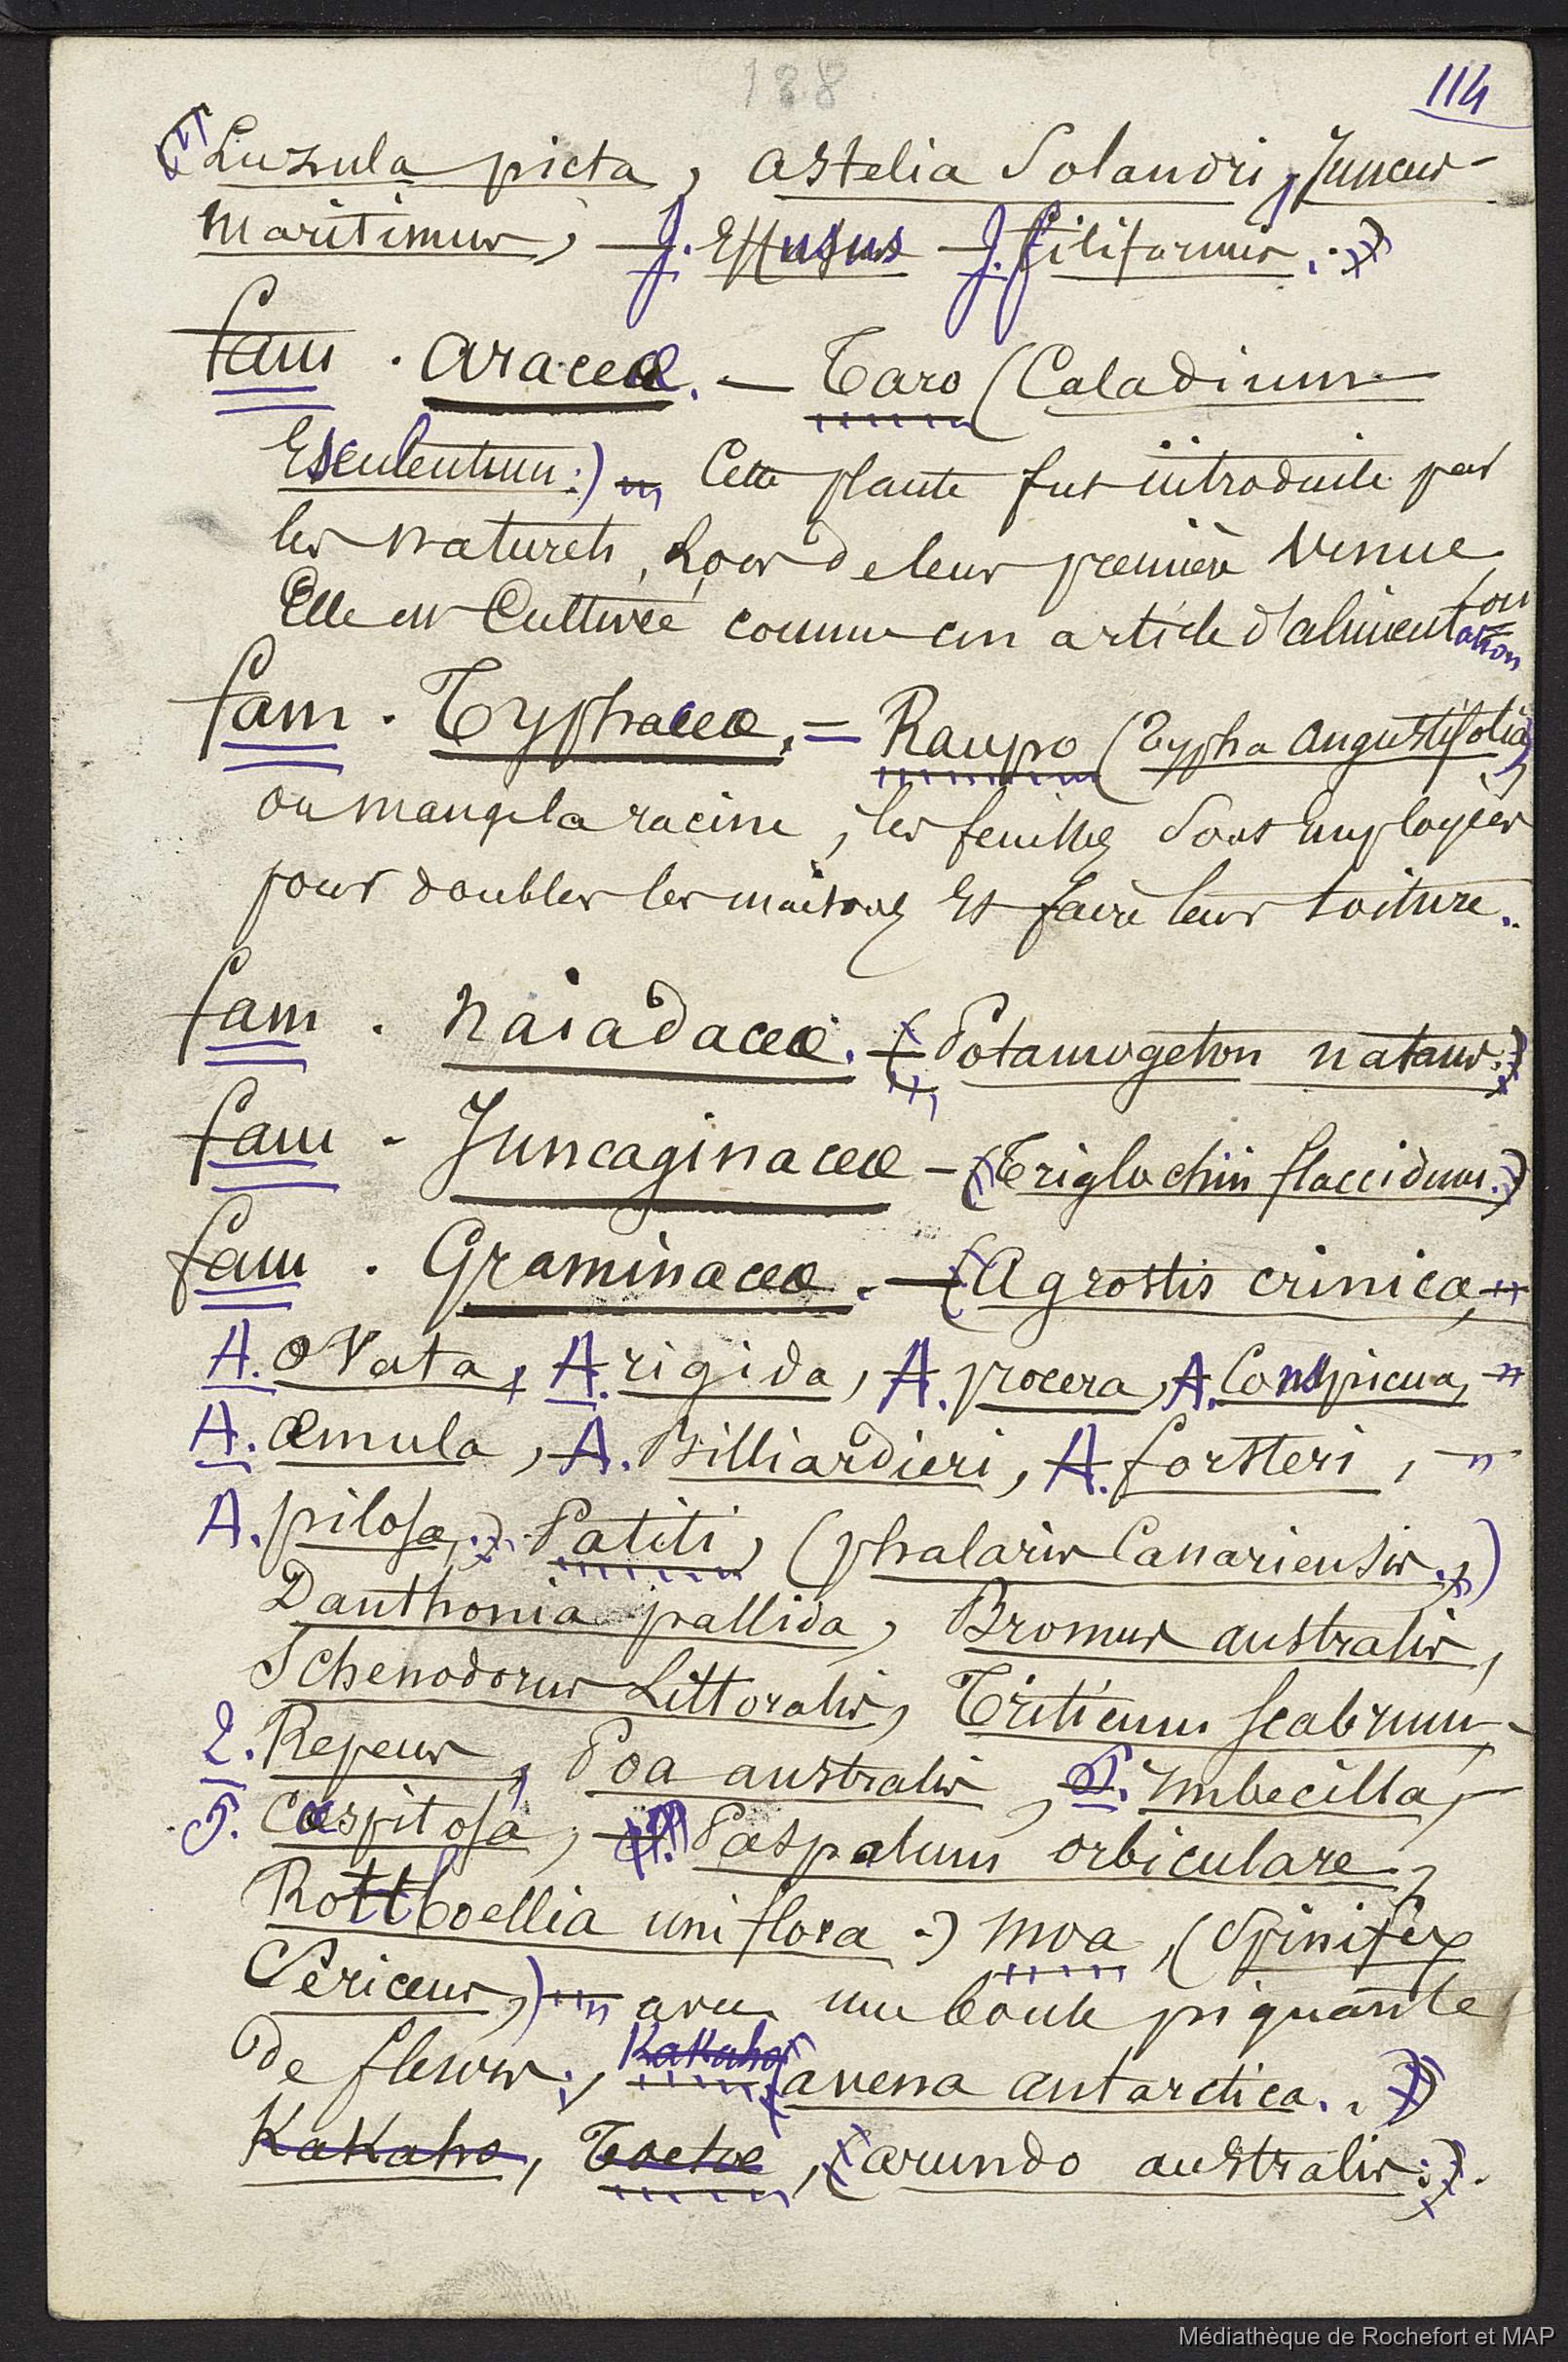 188
114
(Luzula picta, Astelia Solandri, Juncus
maritimus, J. Effusus J. filiformis.)
fam. Araceæ. — Taro (Caladium
Esculentum.) Cette plante fut introduite par
les naturels, Lors de leur première venue
Elle est Cultivée comme un article d'alimentation
fam. Typhaceæ. = Raupo (Typha angustifolia)
on mange la racine, les feuilles sont Employées
pour doubler les maisons Et faire leur toiture.
fam. Naiadaceæ. (Potamogeton natans.)
fam. Juncaginaceæ — (Triglochin flaccidum.)
fam. Graminaceæ. — (Agrostis crinica,
A. ovata, A. rigida, A. procera, A. Conspicua,
A. æmula, A. Billiardieri, A. forsteri,
A. pilosa,) Patiti, (phalaris Canariensis,)
Danthonia pallida, Bromus australis,
Schenodorus Littoralis, Triticum scabrum,
Repens, Poa australis, P. imbecilla,
P. Cæspitosa, Paspalum orbiculare,
Rottboellia uniflora.) Moa, (Spinifex
Sericeus,) avec une boule piquante
de fleurs, Kakaho (avena antarctica..)
Kakaho, Toetoe, (arundo australis.).
Médiathèque de Rochefort et MAP